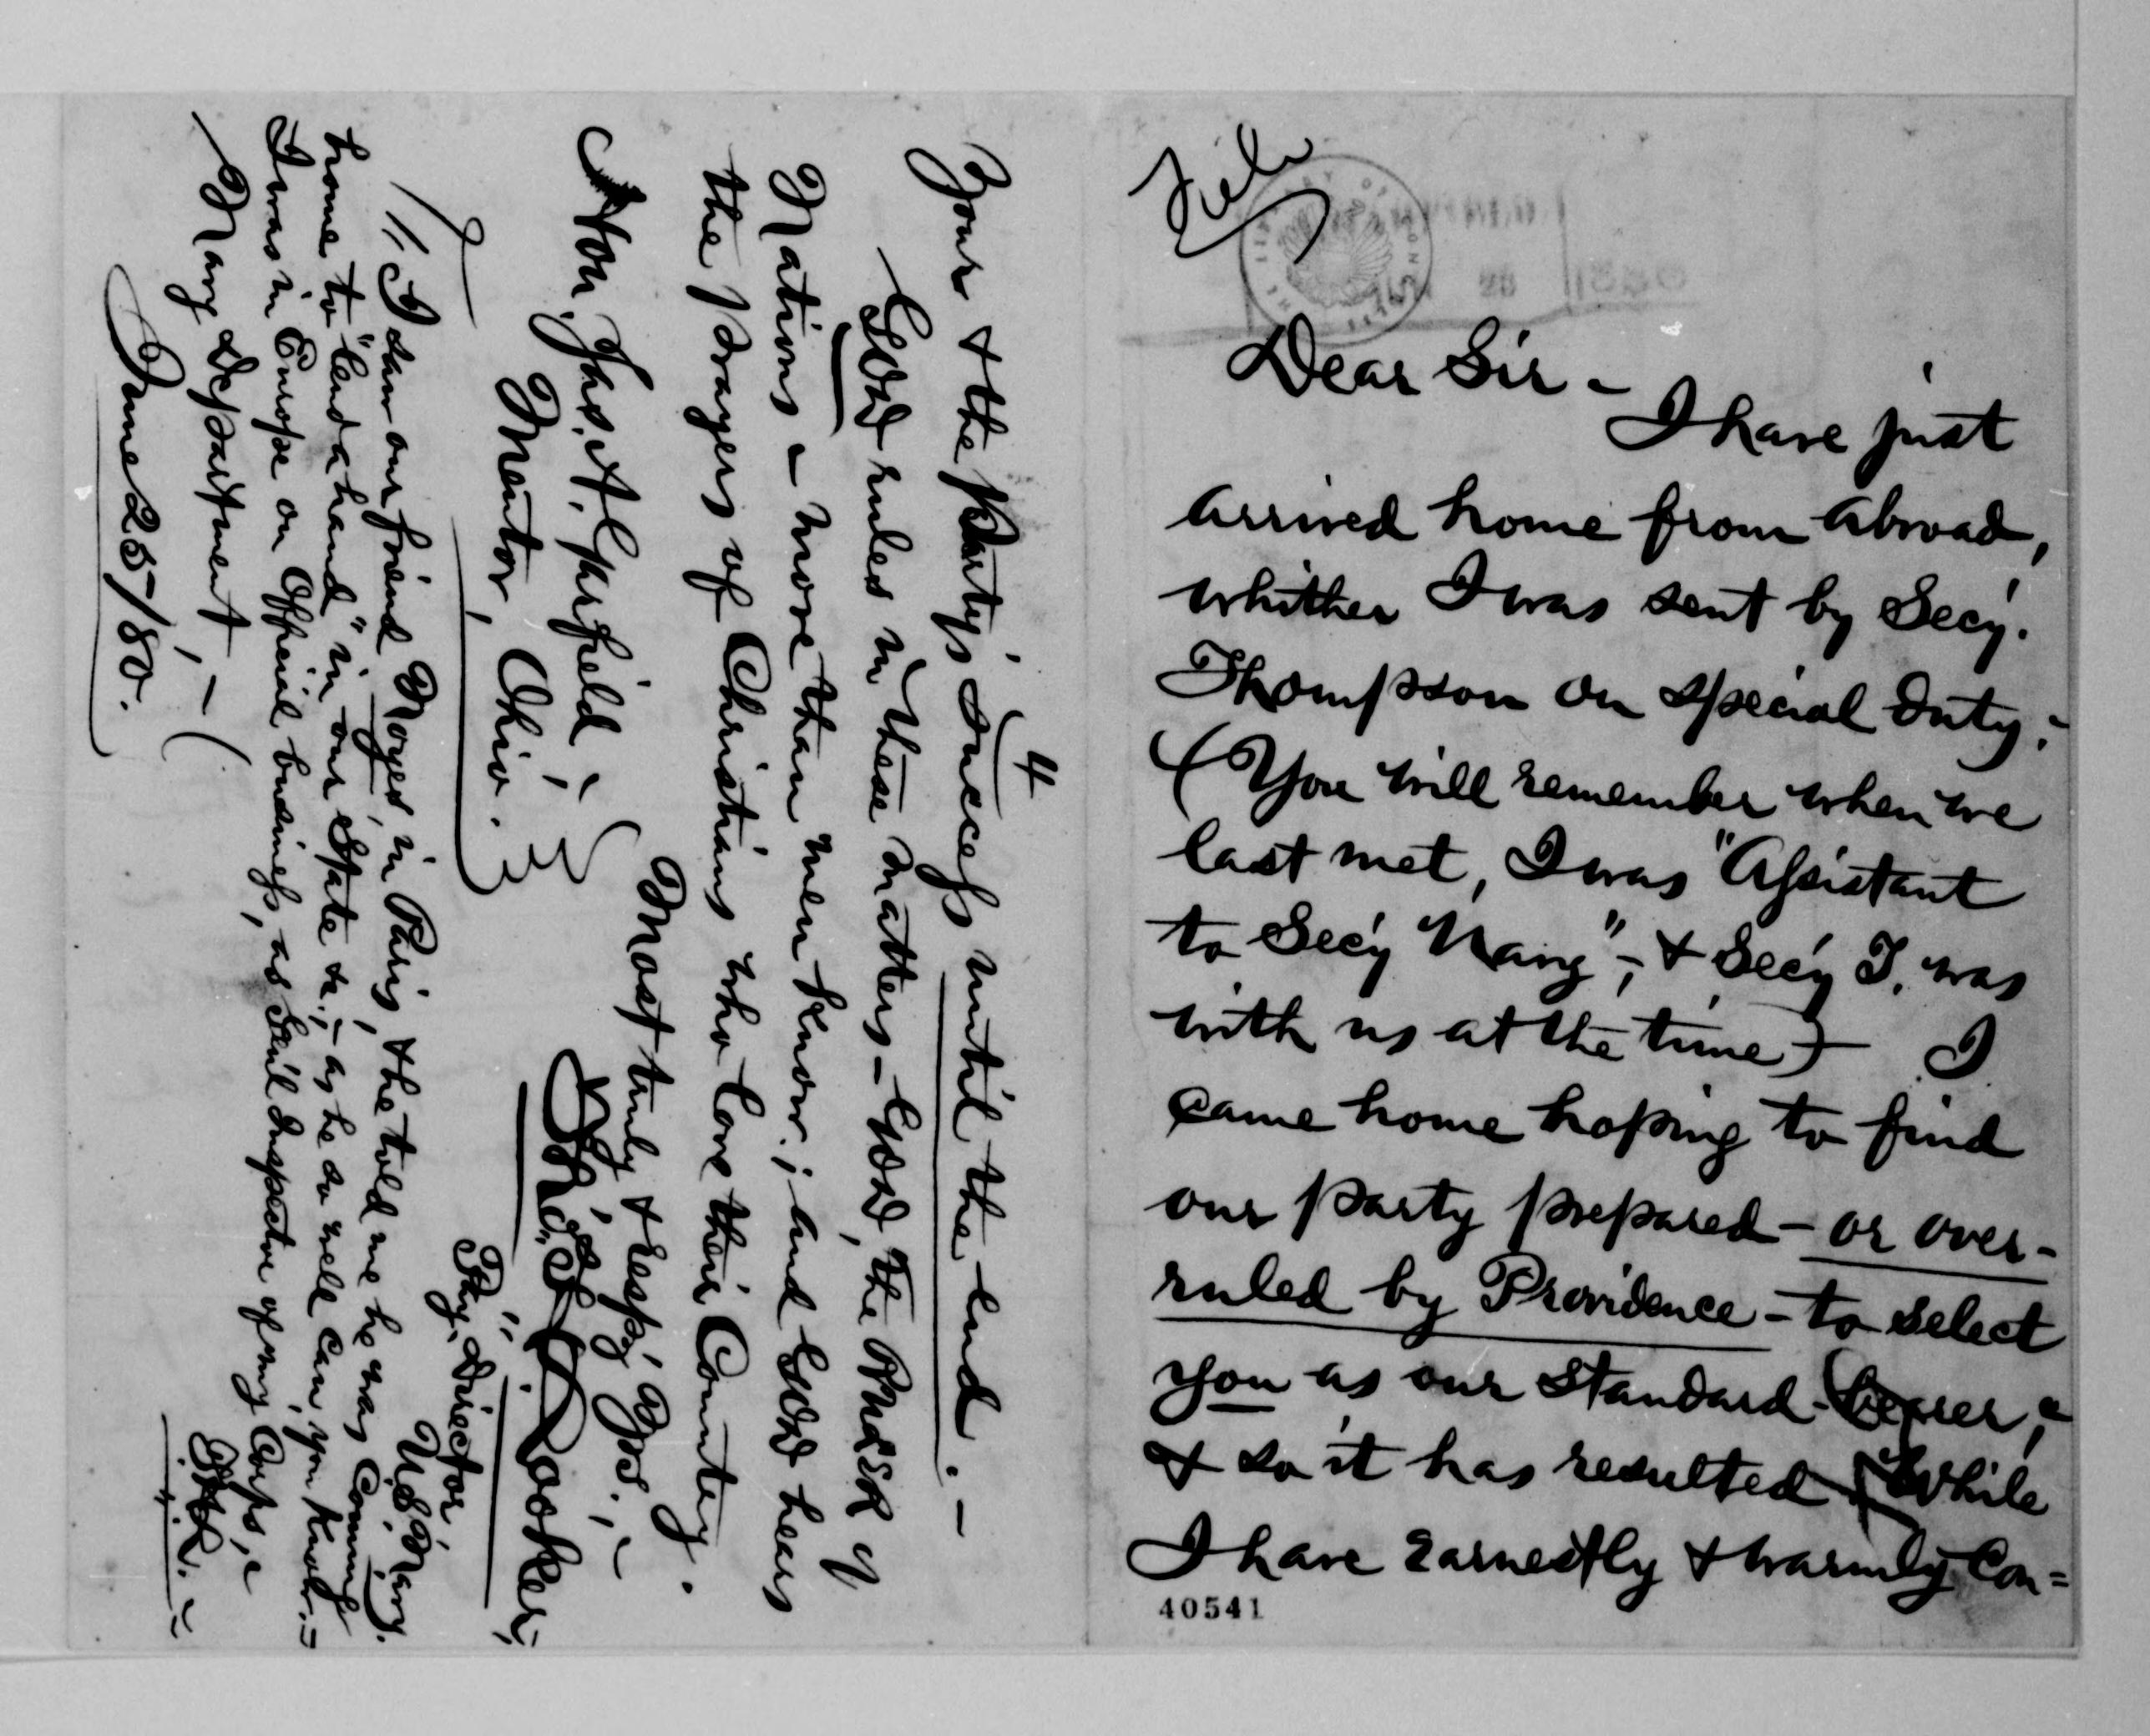 File
THE LIBRARY OF CONGRESS
28 1880
Dear Sir -
I have just
arrived home from abroad,
whither I was sent by Secy.
Thompson on special duty;
(You will remember when we
last met, I was "Assistant
to Sec'y Navy"; & Sec'y T. was
with us at the time) - I
came home hoping to find
our party prepared - or over-
ruled by Providence - to select
you as our Standard-bearer;
& so it has resulted. While
I have earnestly & warmly Con=
40541
4
Your & the Party's success until the End. -
God rules in these matters - God, the Ruler of
Nations - more than men know; and God hears
the prayers of Christians who love their Country.
Most truly & resp'y Yrs. -
Hon. Jas. A. Garfield -
Mentor, Ohio.
Hooker,
Pay Director,
U.S. Navy.
I saw our friend Noyes, in Paris, & he told me he was Coming
home to "lend a hand" in our State &c; - as he so well can, you know: -
I was in Europe on Official business, as Gen'l Inspector of my Corps, -
Navy Department, -
June 25/80.